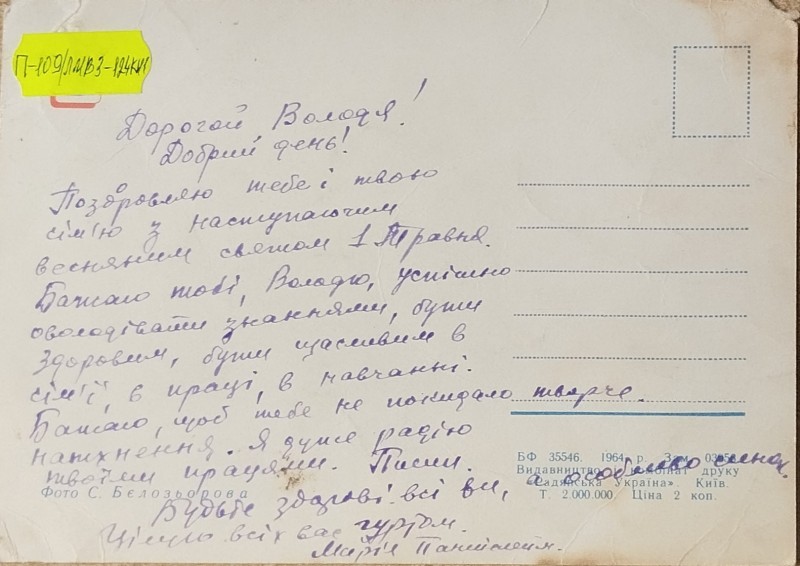 П-109/ЛМВЗ-124КН
Дорогой Володя!
Добрий день!
Поздоровляю тебе і твою
сім'ю з наступаючим
весняним святом 1 Травня.
Бажаю тобі, Володю, успішно
оволодівати знаннями, бути
здоровим, бути щасливим в
сім'ї, в праці, в навчанні.
Бажаю, щоб тебе не покидало творче
натхнення. Я дуже радію
твоїми працями. Пиши.
Будьте здорові всі ви, а особливо синок.
Цілую всіх вас гуртом.
Марія
Фото С. Бєлозьорова
БФ 35546. 1964 р. Зам.
Видавництво і комбінат друку
«Радянська Україна». Київ.
Т. 2.000.000. Ціна 2 коп.